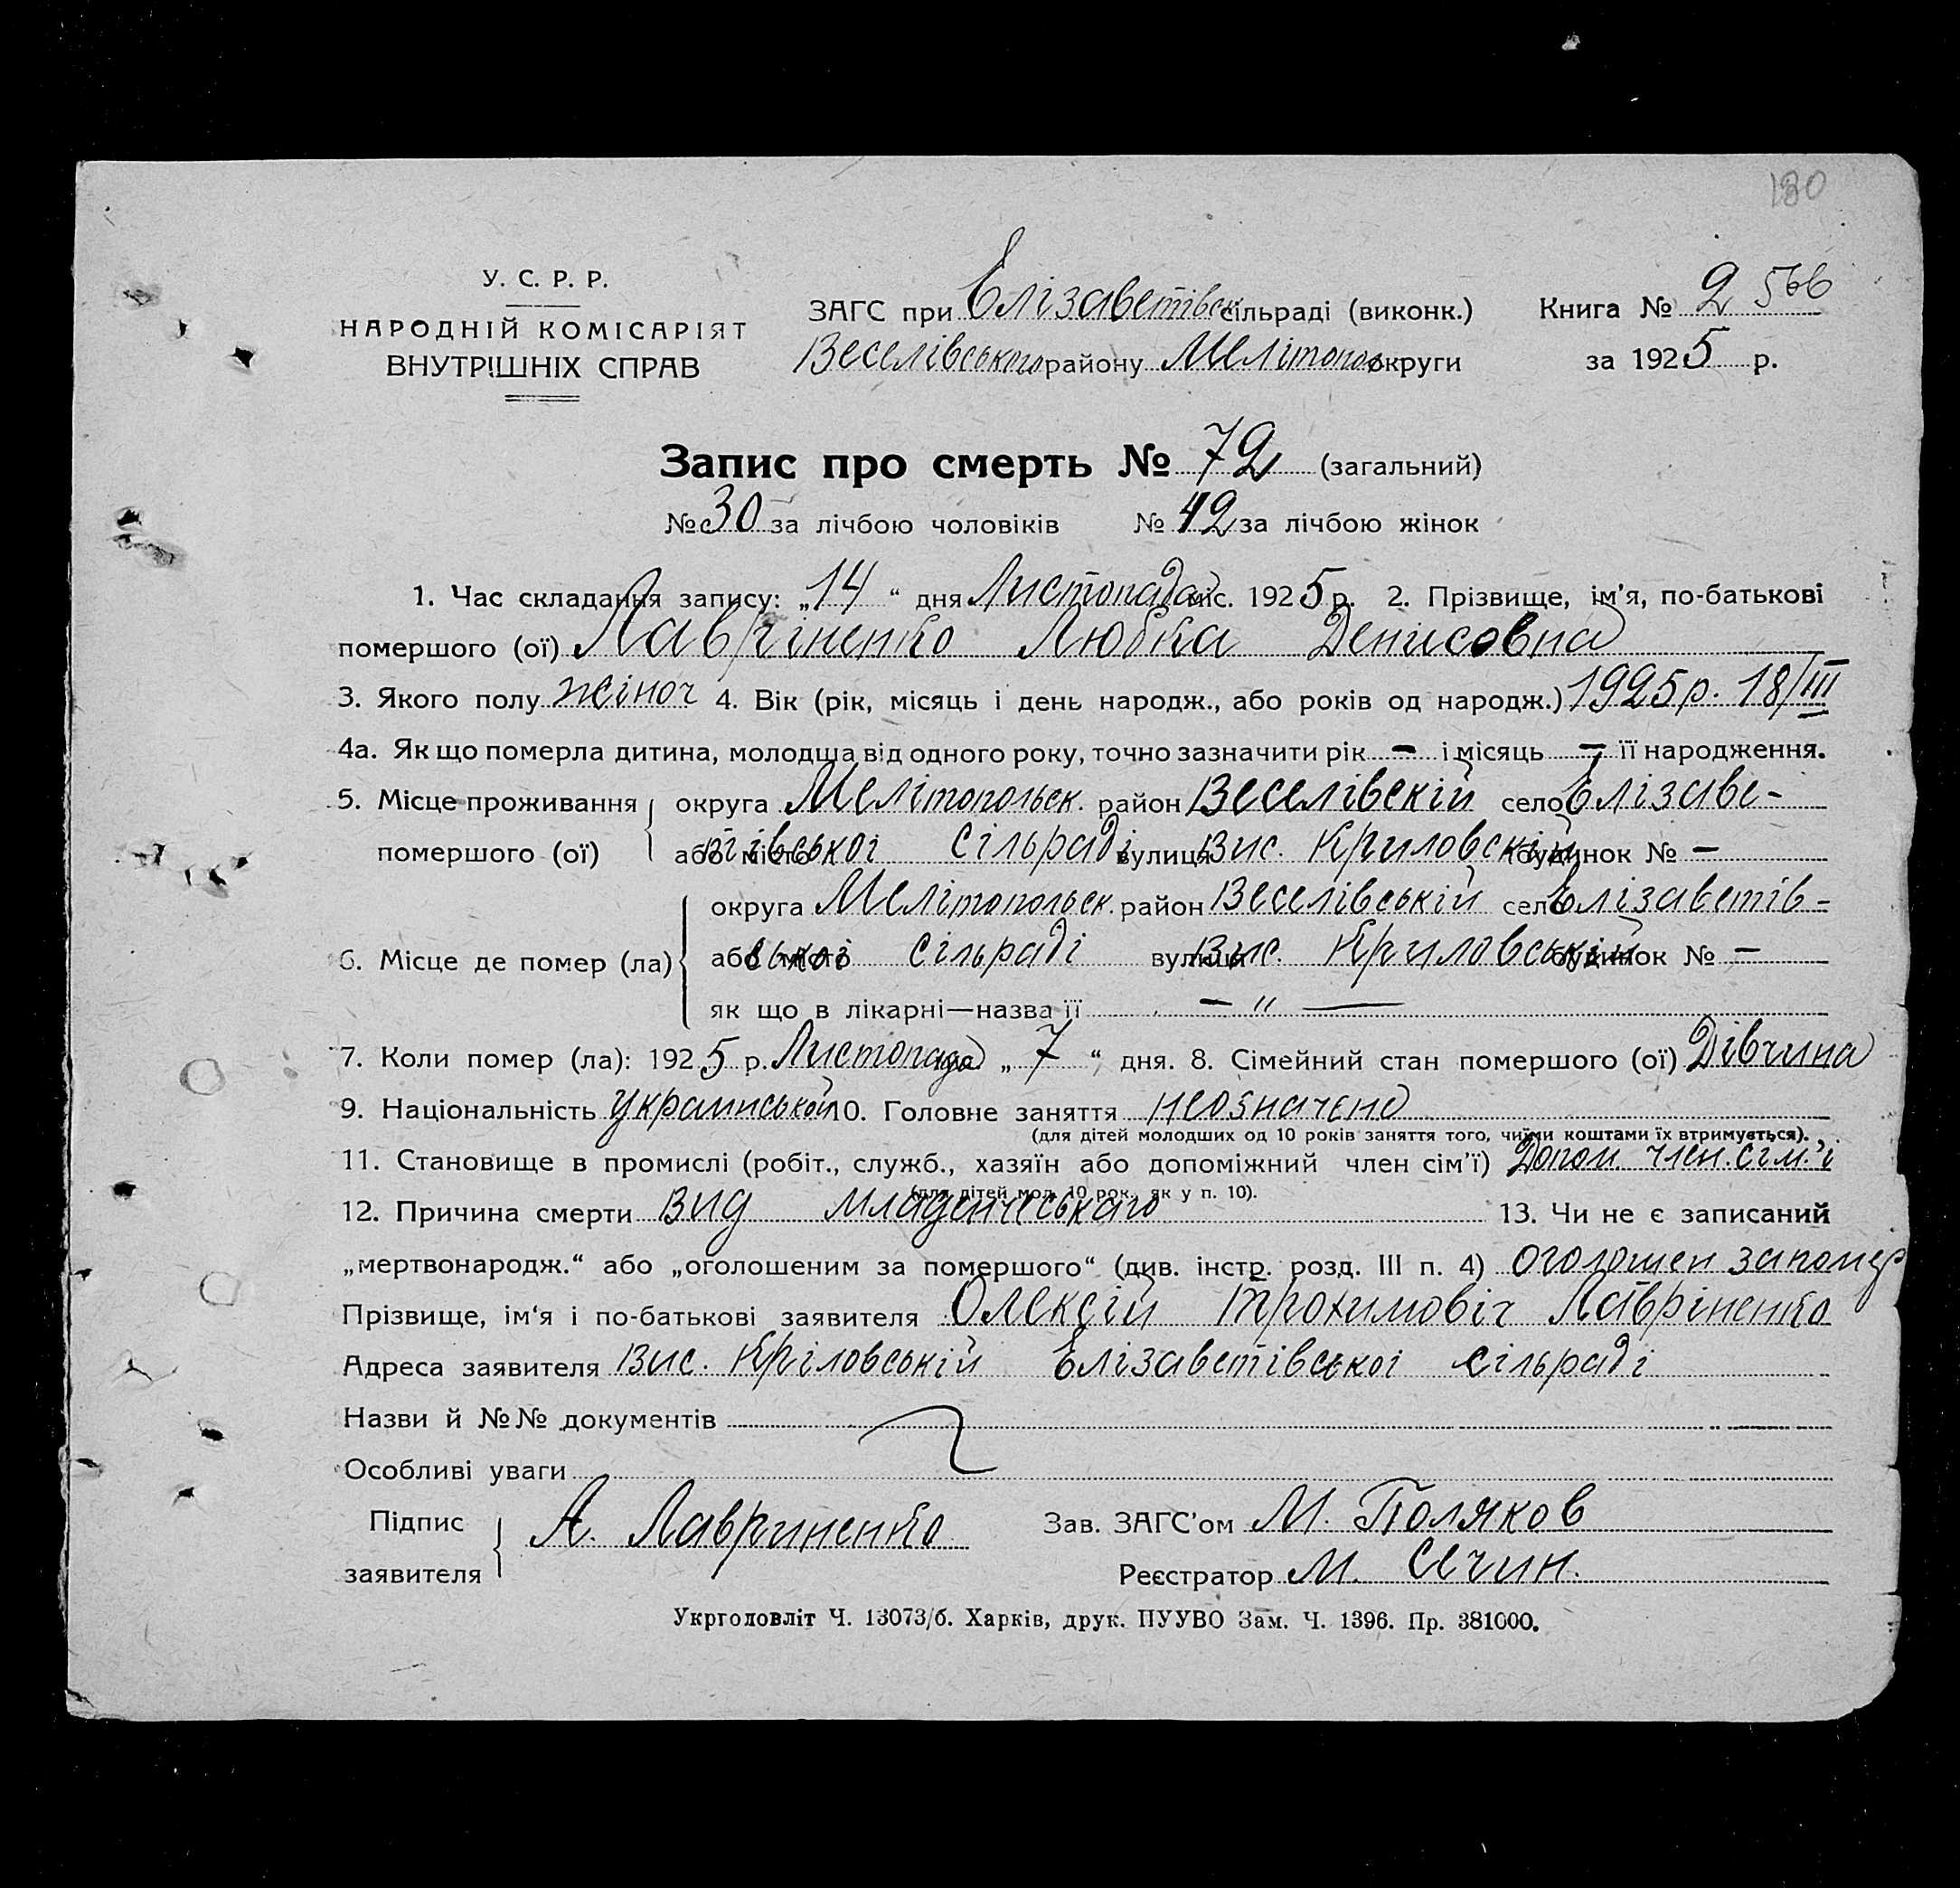 180
У. С. Р. Р.
НАРОДНІЙ КОМІСАРІЯТ
ВНУТРІШНІХ СПРАВ
ЗАГС при Елізаветівск сільраді (виконк.)
Веселівського району Мелітополь округи
Книга № 2 566
за 1925 р.
Запис про смерть № 72 (загальний)
№ 30 за лічбою чоловіків № 42 за лічбою жінок
1. Час складання запису: „14“ дня Листопада міс. 1925 р. 2. Прізвище, ім’я, по-батькові
помершого (ої) Лавріненко Любка Денисовна
3. Якого полу жіноч 4. Вік (рік, місяць і день народж., або років од народж.) 1925 р. 18/III
4а. Як що померла дитина, молодша від одного року, точно зазначити рік – і місяць – її народження.
5. Місце проживання помершого (ої) округа Мелітопольск. район Веселівскій село Елізаве-
або місто тівської сільраді вулиця Вис. Криловскій будинок № –
6. Місце де помер (ла) округа Мелітопольск. район Веселівській село Елізаветів-
або місто ської сільраді вулиця Вис. Криловській будинок № –
як що в лікарні—назва її – „ —
7. Коли помер (ла): 1925 р. Листопада „7“ дня. 8. Сімейний стан помершого (ої) Дівчина
9. Національність украинськой 10. Головне заняття неозначено
(для дітей молодших од 10 років заняття того, чиїми коштами їх втримується).
11. Становище в промислі (робіт., служб., хазяїн або допоміжний член сім’ї) Допом. член. сім.’ї
(для дітей мол. 10 рок., як у п. 10).
12. Причина смерти вид младенчеського 13. Чи не є записаний
„мертвонародж.“ або „оголошеним за помершого“ (див. інстр. розд. III п. 4) оголошен за помер
Прізвище, ім‘я і по-батькові заявителя Олексій Трохимовіч Лавріненко
Адреса заявителя Вис. Кріловській Елізаветівської сільраді
Назви й №№ документів
Особливі уваги
Підпис заявителя А. Лавриненко
Зав. ЗАГС’ом М. Поляков
Реєстратор М. Сечин.
Укрголовліт Ч. 13073/б. Харків, друк. ПУУВО Зам. Ч. 1396. Пр. 381000.